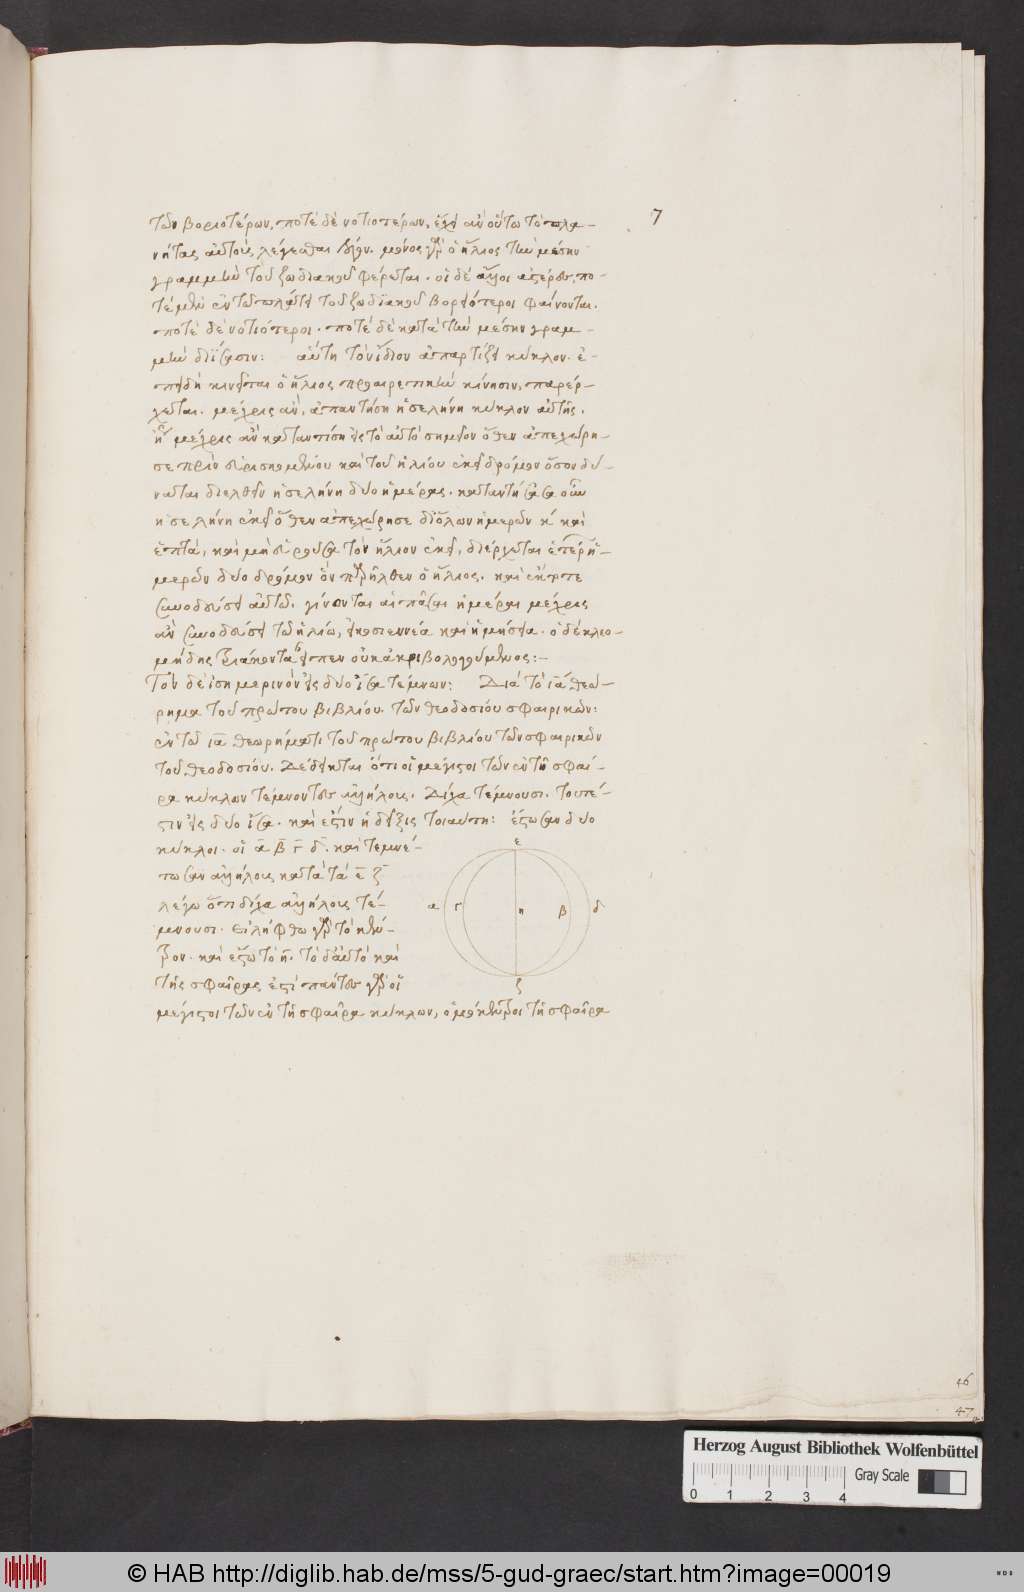 7
τῶν βοριοτέρων, ποτὲ δὲ νοτιοτέρων, ἔχει ἂν οὕτω τὸ πλα-
νήτας αὐτοὺς λέγεσθαι λόγον. μόνος γὰρ ὁ ἥλιος τὴν μέσην
γραμμὴν τοῦ ζωδιακοῦ φέρεται. οἱ δὲ ἄλλοι ἀστέρες, πο-
τὲ μὲν ἐν τῷ πλάτει τοῦ ζωδϊακοῦ βορειότεροι φαίνονται.
ποτὲ δὲ νοτιότεροι. ποτὲ δὲ κατὰ τὴν μέσην γραμ-
μὴν δϊΐασιν: αὕτη τὸν ἴδιον ἀπαρτίζει κύκλον. ἐ-
πειδὴ κινεῖται ὁ ἥλιος προαιρετικὴν κίνησιν, παρέρ-
χεται. μέχρις ἂν, ἀπαντήση ἡ σελήνη κύκλον αὐτῆς.
ἢ μέχρις ἂν καταντήση εἰς τὸ αὐτὸ σημεῖον ὅθεν ἀπεχώρη-
σε πρὶν εὑρισκομένου καὶ τοῦ ἡλίου ἐκεῖ δρόμον ὅσον δύ-
ναται διελθεῖν ἡ σελήνη δύο ἡμέρας. καταντήσασα οὖν
ἡ σελήνη ἐκεῖ ὅθεν ἀπεχώρησε δι' ὅλων ἡμερῶν κʹ καὶ
ἑπτὰ, καὶ μὴ εὑροῦσα τὸν ἥλιον ἐκεῖ, διέρχεται ἑτέρων ἡ-
μερῶν δύο δρόμον ὃν παρῆλθεν ὁ ἥλιος. καὶ
συνοδεύει αὐτῷ. γίνονται αἱ πᾶσαι ἡμέραι μέχρις
ἂν συνοδεύσει τῷ ἡλίῳ, εἰκοσιεννέα καὶ ἡμίσεια. ὁ δὲ κλεο-
μήδης τριάκοντα εἶπεν οὐκ ἀκριβολογούμενος:-
Τὸν δὲ ἰσημερινὸν εἰς δύο ἴσα τέμνων: Διὰ τὸ ια θεώ-
ρημα τοῦ πρώτου βιβλίου τῶν θεοδοσίου σφαιρικῶν:
ἐν τῷ ια θεωρήματι τοῦ πρώτου βιβλίου τῶν σφαιρικῶν
τοῦ θεοδοσίου. Δέδεικται ὅτι οἱ μέγιστοι τῶν ἐν τῇ σφαί-
ρα κύκλων τέμνοντες ἀλλήλους. Δίχα τέμνουσι. τουτέ-
στιν εἰς δύο ἴσα. καὶ ἔστιν ἡ δεῖξις τοιαύτη: ἔστωσαν δύο
κύκλοι. οἱ α β γ δ. καὶ τεμνέ-
τωσαν ἀλλήλους κατὰ τὰ ε ζ
λέγω ὅτι δίχα ἀλλήλους τέ-
μνουσι. Εἰλήφθω γὰρ τὸ κέν-
τρον. καὶ ἔστω τὸ η. τὸ δ' αὐτὸ καὶ
τῆς σφαῖρας ἐστὶ πάντως γὰρ οἱ
μέγιστοι τῶν ἐν τῇ σφαῖρα κύκλων, ὁμόκεντροι τῇ σφαῖρα
ε
α γ η β δ
ζ
46
47
Herzog August Bibliothek Wolfenbüttel
Gray Scale
0 1 2 3 4
© HAB http://diglib.hab.de/mss/5-gud-graec/start.htm?image=00019